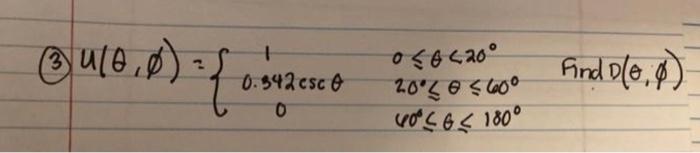 ③ U(θ,ø) = { 1 0 ≤ θ < 20°
0.342 csc θ 20° ≤ θ ≤ 60°
0 60° ≤ θ ≤ 180°
Find D(θ,ø)